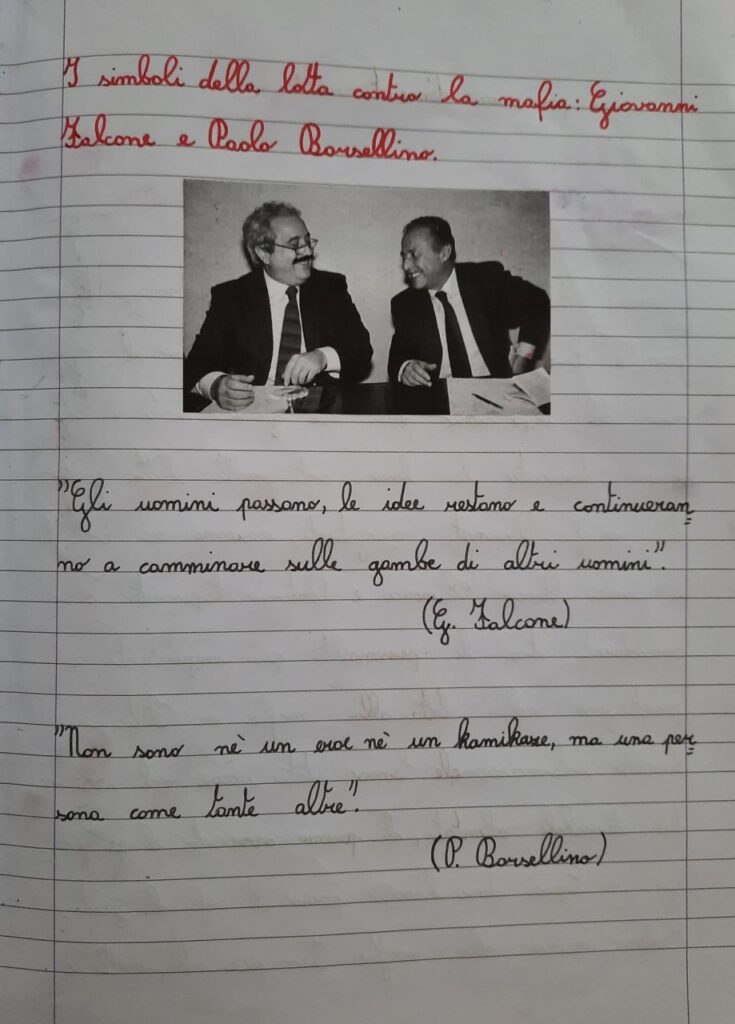 I simboli della lotta contro la mafia: Giovanni
Falcone e Paolo Borsellino.
"Gli uomini passano, le idee restano e continueran=
no a camminare sulle gambe di altri uomini".
(G. Falcone)
"Non sono nè un eroe nè un kamikaze, ma una per=
sona come tante altre".
(P. Borsellino)